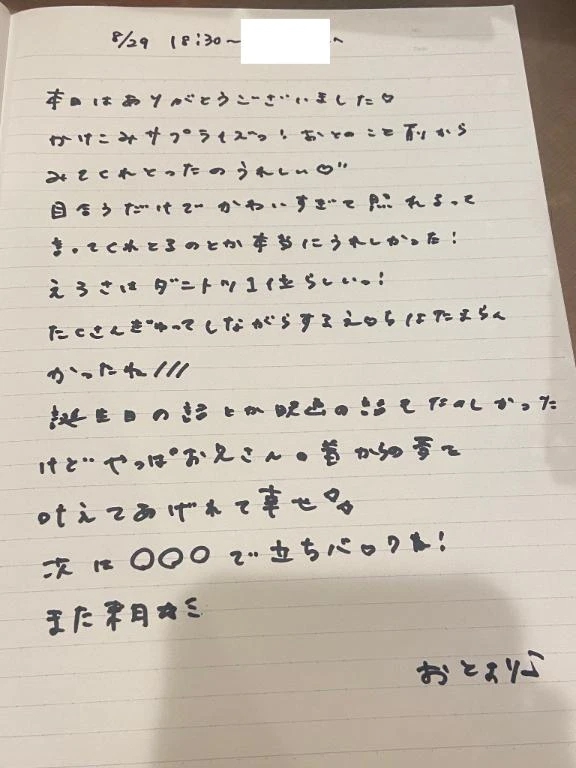 8/29 18:30〜 へ
本日はありがとうございました♡
かけこみサプライズっ!おとのこと前から
みてくれとったのうれしい♡"
目合うだけでかわいすぎて照れるって
まってくれとるのとか本当にうれしかった!
えろさはダントツ1位らしいっ!
たくさんぎゅってしながらするえ♡ちはたまらん
かったね///
誕生日の話とか映画の話もたのしかった
けどやっぱお兄さんの昔からの夢を
叶えてあげれて幸せ♡♡
次は〇〇〇で立ちバックね!
また来月☆ミ
おとより♪